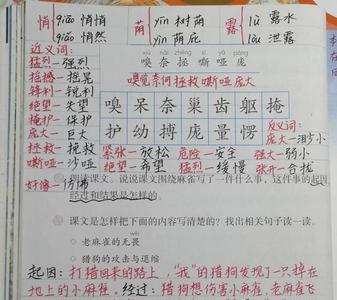 悄 qiǎo 悄悄 荫 yīn 树荫 露 lù 露水
qiǎo 悄然 yìn 荫庇 lòu 泄露
近义词:
猛烈-强烈 xiù nài zhěng sī yǎ páng
摇撼-摇晃 嗅奈拯嘶哑庞
锋利-锐利 嗅觉 奈何 拯救 嘶哑 庞大
绝望-失望 嗅呆奈巢齿躯掩
掩护-保护 护幼搏庞量愣 反义词:
庞大-巨大 庞大-细小
拯救-挽救 紧张-放松 危险-安全 强大-弱小
嘶哑-沙哑 绝望-希望 猛烈-缓慢 张开-合拢
好像-仿佛
朗读课文,说说课文围绕麻雀写了一件什么事,这件事的起因、
经过和结果是怎样的。
课文是怎样把下面的内容写清楚的?找出相关句子读一读。
◇ 老麻雀的无畏
◇ 猎狗的攻击与退缩
起因:打猎回来的路上,“我”的猎狗发现了一只掉在
地上的小麻雀,经过:猎狗想伤害小麻雀,老麻雀飞